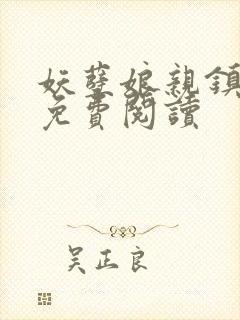 妖孽娘親鎮
免費閱讀
吴正良